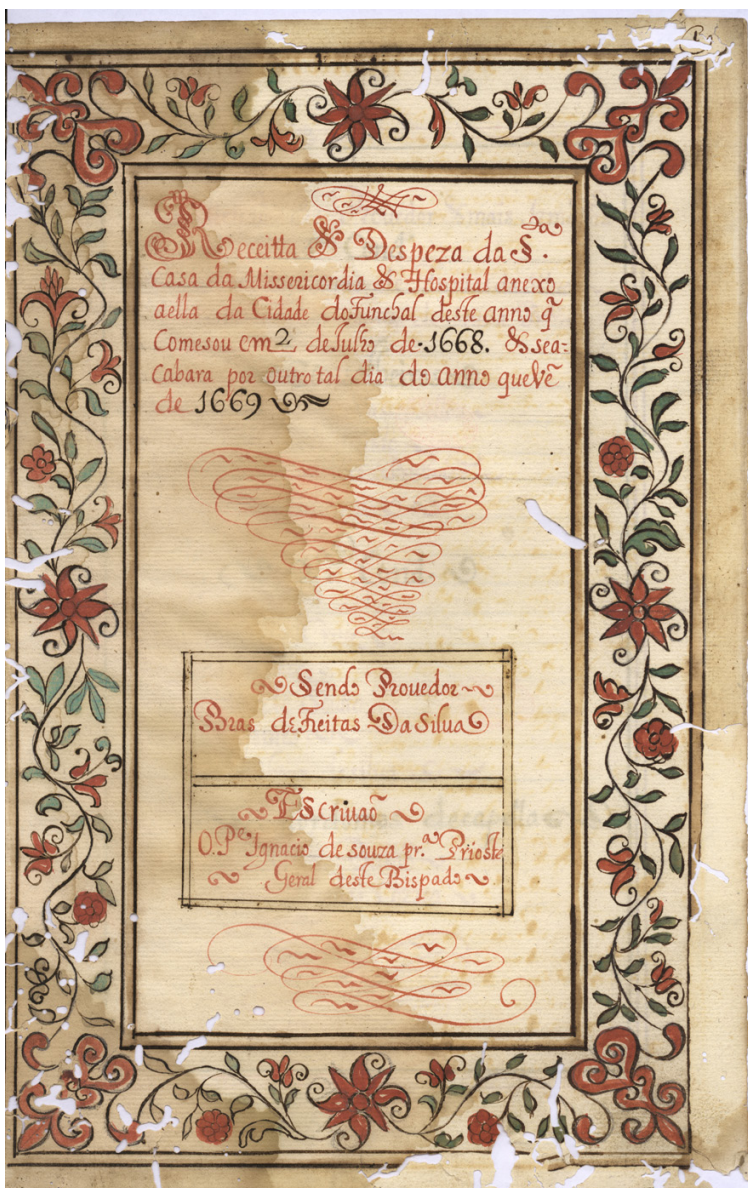 Receitta & Despeza da S.ᵗᵃ
Casa da Missericordia & Hospital anexo
aella da Cidade do Funchal deste anno q̃
Comesou em 2 de Julho de .1668. & sea-
cabara por outro tal dia do anno que vẽ
de 1669
Sendo Prouedor
Bras de Freitas Da Silua
Escriuaõ
O. Pᵉ Ignacio de souza pr.ᵃ Prioste
Geral deste Bispado